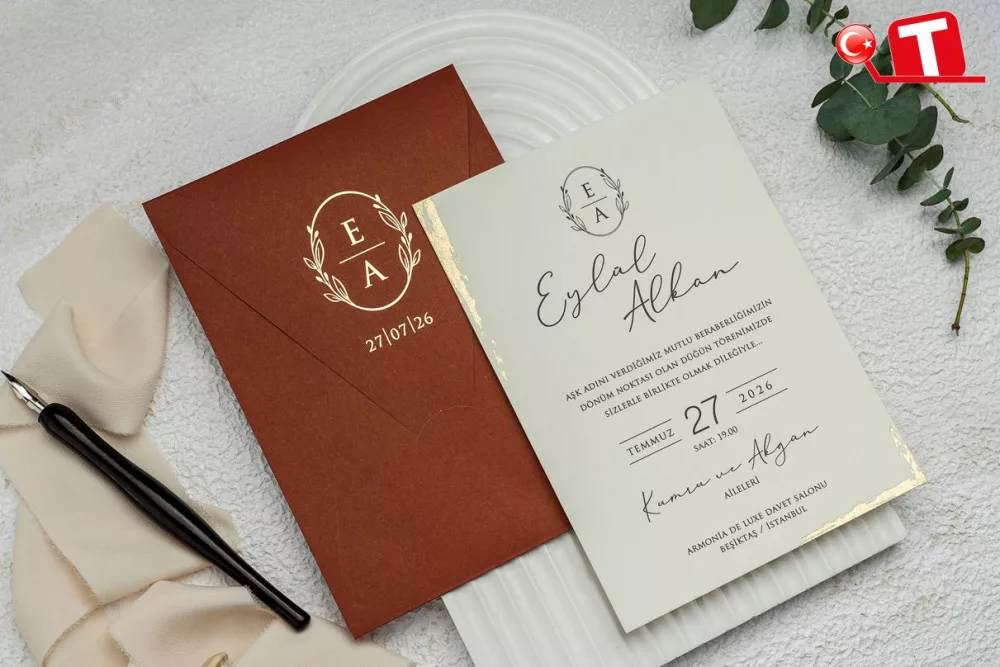 T
E
A
27|07|26
E
A
Eylal
Alkan
AŞK ADINI VERDİĞİMİZ MUTLU BERABERLİĞİMİZİN
DÖNÜM NOKTASI OLAN DÜĞÜN TÖRENİMİZDE
SİZLERLE BİRLİKTE OLMAK DİLEĞİYLE...
TEMMUZ 27 2026
SAAT: 19.00
Kumru ve Akgan
AİLELERİ
ARMONİA DE LUXE DAVET SALONU
BEŞİKTAŞ / İSTANBUL